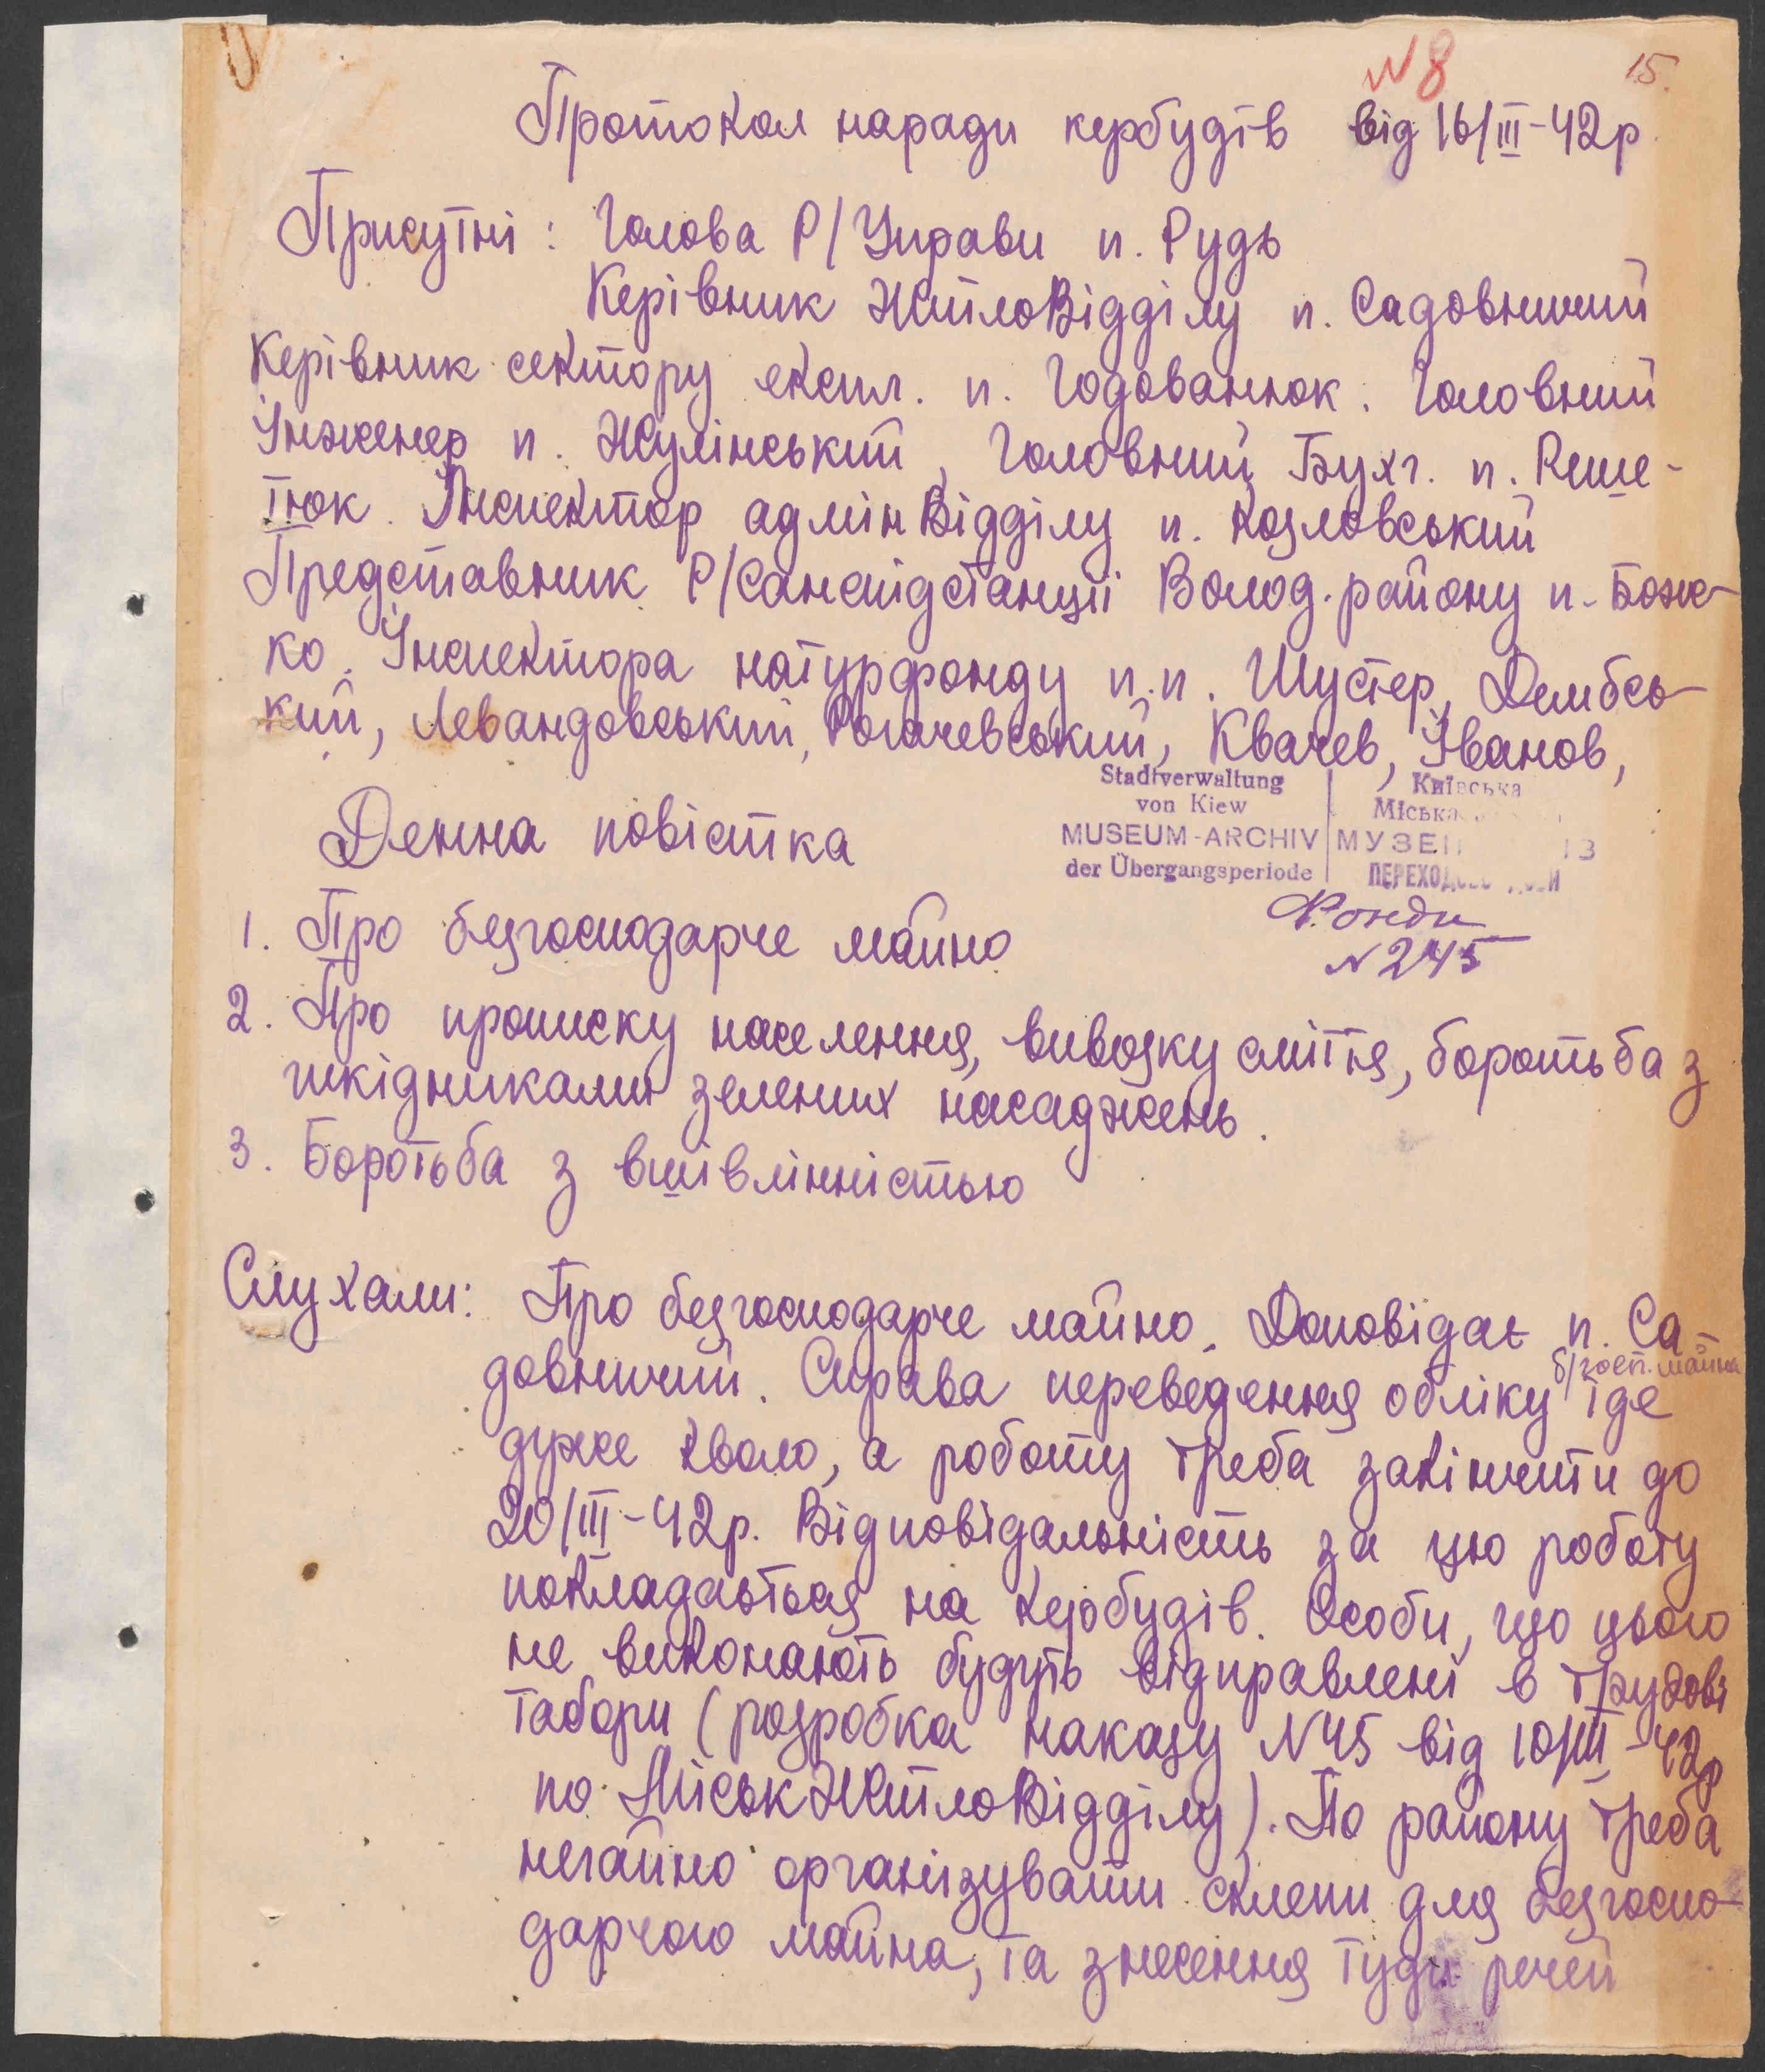 N 8
15.
Протокол наради кербудів від 16/III-42р.
Присутні: Голова Р/Управи п. Рудь
Керівник ЖитлоВідділу п. Садовничий
Керівник сектору експл. п. Годованюк. Головний
Інженер п. Жулінський, Головний Бухг. п. Реше-
тюк. Інспектор адмінВідділу п. Козловський
Представник Р/Санепідстанції Волод. району п. Бож-
ко. Інспектора натурфонду п.п. Шустер, Дембсь-
кий, Левандовський, Рогачевський, Квачев, Іванов,
Stadtverwaltung
von Kiew
MUSEUM-ARCHIV
der Übergangsperiode
Київська
Міська
Фонди
N 245
Денна повістка
1. Про безгосподарче майно
2. Про прописку населення, вивозку сміття, боротьба з
шкідниками зелених насаджень.
3. Боротьба з вшівлінністью
Слухали: Про безгосподарче майно. Доповідає п. Са-
довничий. Справа переведення обліку б/госп. майна іде
дуже кволо, а роботу треба закінчити до
20/III-42р. Відповідальність за цю роботу
покладається на кербудів. Особи, що цього
не виконають будуть відправлені в трудові
табори (розробка наказу N45 від 10/III-42р
по МіськЖитлоВідділу). По району треба
негайно організувати склепи для безгоспо-
дарчого майна, та знесення туди речей